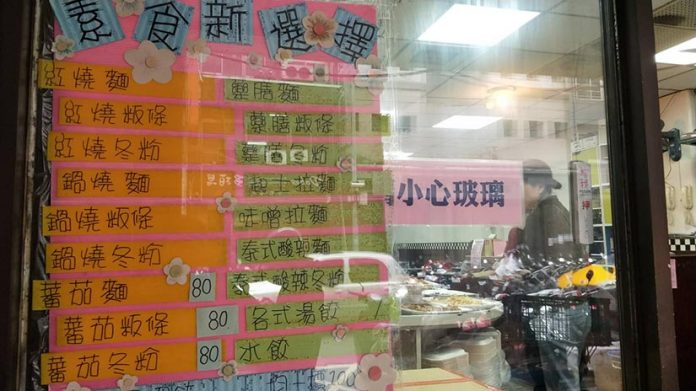 素食新選擇
紅燒麵
紅燒粄條
紅燒冬粉
鍋燒麵
鍋燒粄條
鍋燒冬粉
蕃茄麵 80
蕃茄粄條 80
蕃茄冬粉 80
藥膳麵
藥膳粄條
藥膳冬粉
起士拉麵
味噌拉麵
泰式酸辣麵
泰式酸辣冬粉
各式湯飲
水餃
小心玻璃